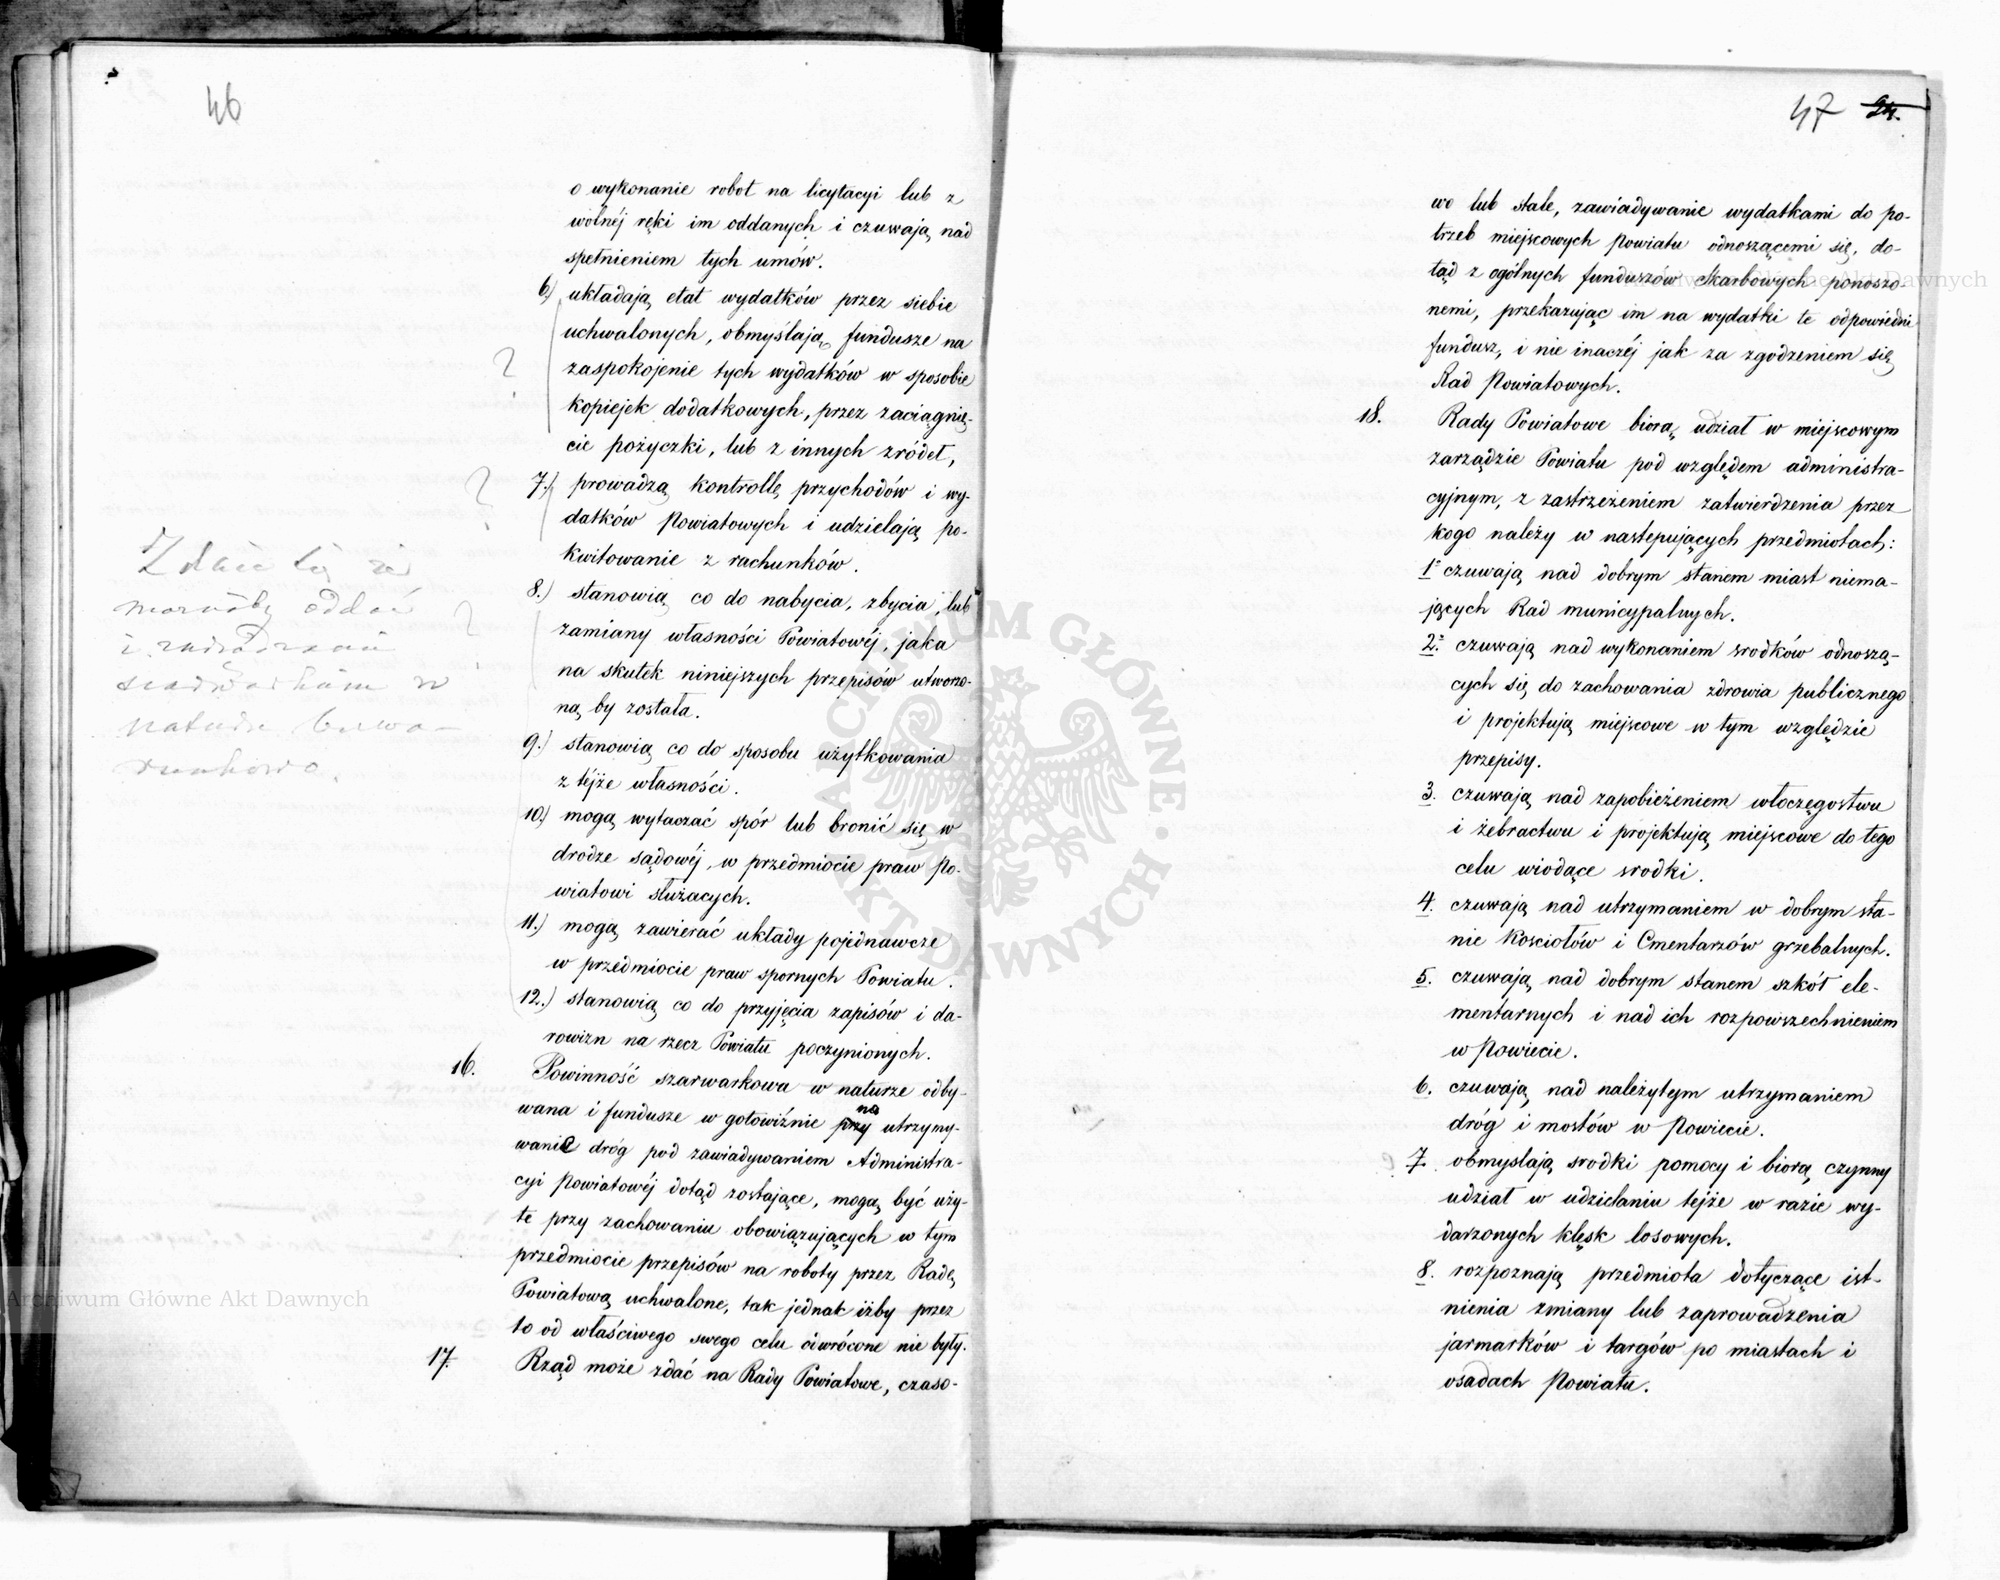 46
o wykonanie robot na licytacyi lub z
wolnéj ręki im oddanych i czuwają nad
spełnieniem tych umów.
6.) układają etat wydatków przez siebie
uchwalonych, obmyślają fundusze na
zaspokojenie tych wydatków w sposobie
kopiejek dodatkowych, przez zaciągnię-
cie pożyczki, lub z innych zródeł,
7.) prowadzą kontrollę przychodów i wy-
datków Powiatowych i udzielają po-
kwitowanie z rachunków.
8.) stanowią co do nabycia, zbycia, lub
zamiany własności Powiatowéj, jaka
na skutek niniejszych przepisów utworzo-
ną by została.
9.) stanowią co do sposobu użytkowania
z téjże własności.
10.) mogą wytaczać spór lub bronić się w
drodze sądowéj, w przedmiocie praw Po-
wiatowi służacych.
11.) mogą zawierać układy pojednawcze
w przedmiocie praw spornych Powiatu.
12.) stanowią co do przyjęcia zapisów i da-
rowizn na rzecz Powiatu poczynionych.
16. Powinność szarwarkowa w naturze odby-
wana i fundusze w gotowiźnie przy na utrzymy-
wanie dróg pod zawiadywaniem Administra-
cyi Powiatowéj dotąd zostające, mogą być uży-
te przy zachowaniu obowiązujących w tym
przedmiocie przepisów na roboty przez Radę
Powiatową uchwalone, tak jednak iżby przez
to od właściwego swego celu odwrócone nie były.
17. Rząd może zdać na Rady Powiatowe, czaso-
? 
?
?
Zdaie się że
możnaby oddać
i
w
naturze
47 24.
wo lub stale, zawiadywanie wydatkami do po-
trzeb miejscowych Powiatu odnoszącemi się, do-
tąd z ogólnych funduszów Skarbowych ponoszo-
nemi, przekazując im na wydatki te odpowiedni
fundusz, i nie inaczéj jak za zgodzeniem się
Rad Powiatowych.
18. Rady Powiatowe biorą udział w miejscowym
zarządzie Powiatu pod względem administra-
cyjnym, z zastrzeżeniem zatwierdzenia przez
kogo należy w nastepujących przedmiotach:
1° czuwają nad dobrym stanem miast niema-
jących Rad municypalnych.
2. czuwają nad wykonaniem srodków odnoszą-
cych się do zachowania zdrowia publicznego
i projektują miejscowe w tym względzie
przepisy.
3. czuwają nad zapobieżeniem włoczęgostwu
i żebractwu i projektują miejscowe do tego
celu wiodące srodki.
4. czuwają nad utrzymaniem w dobrym sta-
nie Kosciołów i Cmentarzów grzebalnych.
5. czuwają nad dobrym stanem szkół ele-
mentarnych i nad ich rozpowszechnieniem
w Powiecie.
6. czuwają nad należytym utrzymaniem
dróg i mostów w Powiecie.
7. obmyslają srodki pomocy i biorą czynny
udział w udzielaniu tejże w razie wy-
darzonych klęsk losowych.
8. rozpoznają przedmiota dotyczące ist-
nienia zmiany lub zaprowadzenia
jarmarków i targów po miastach i
osadach Powiatu.
ARCHIWUM GŁÓWNE AKT DAWNYCH
Archiwum Główne Akt Dawnych
Archiwum Główne Akt Dawnych